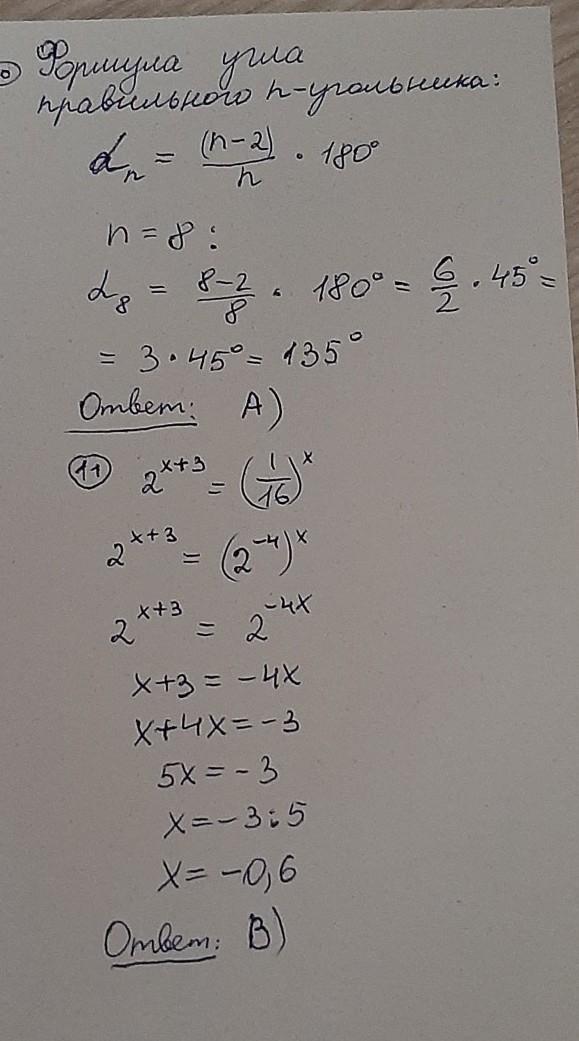 Формула угла
правильного n-угольника:
α_n = (n-2)/n · 180°
n = 8 :
α_8 = 8-2/8 · 180° = 6/2 · 45° =
= 3 · 45° = 135°
Ответ: А)
11 2^(x+3) = (1/16)^x
2^(x+3) = (2^(-4))^x
2^(x+3) = 2^(-4x)
x+3 = -4x
x+4x = -3
5x = -3
x = -3:5
x = -0,6
Ответ: В)